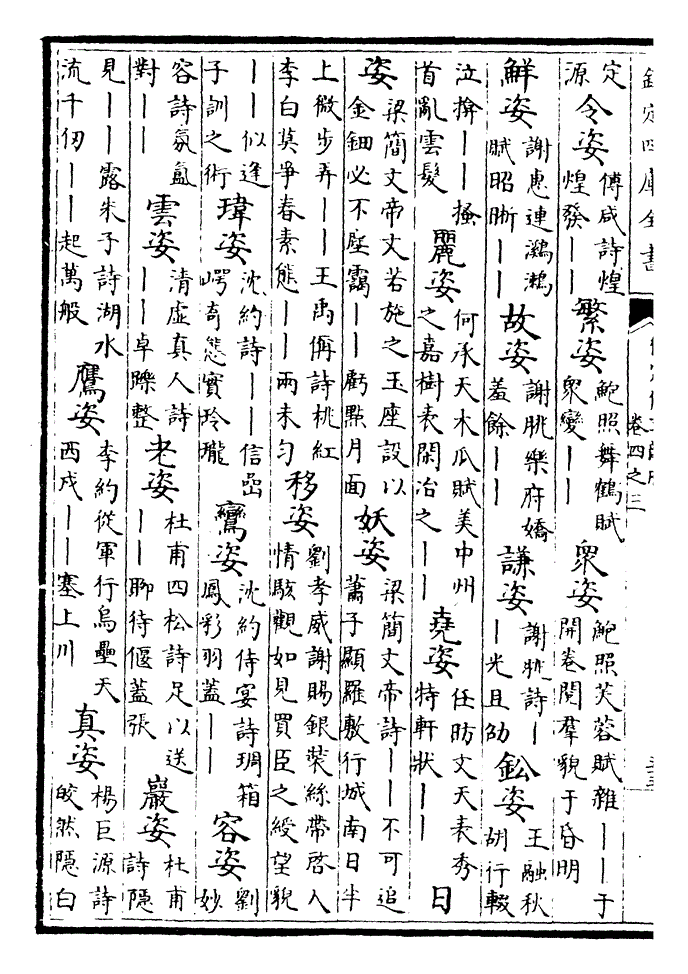 欽定四庫全書
卷四之三
定源令姿傅咸詩煌煌發——繁姿鮑照舞鶴賦衆變——衆姿鮑照芙蓉賦雜——于開卷閱羣貌于昏明
鮮姿謝惠連鸂鶒賦昭晣——故姿謝朓樂府嬌羞餘——謙姿謝朓詩——光且劭鈆姿王融秋胡行輟
泣掩——搔首亂雲髮麗姿何承天木瓜賦美中州之嘉樹表閑冶之——堯姿任昉文天表秀特軒狀——日
姿梁簡文帝文若施之玉座設以金鈿必不塵靄——虧點月面妖姿梁簡文帝詩——不可追蕭子顯羅敷行城南日半
上微步弄——王禹偁詩桃紅李白莫爭春素態——兩未勻移姿劉孝威謝賜銀裝絲帶啓入情駭觀如見買臣之綬望貌
——似逢子訓之術瑋姿沈約詩——信嵒崿奇態實玲瓏鸞姿沈約侍宴詩琱箱鳳彩羽蓋——容姿劉妙
容詩氛氳對——雲姿清虛真人詩——卓躒整老姿杜甫四松詩足以送——聊待偃蓋張巖姿杜甫詩隱
見——露朱子詩湖水流千仞——起萬般鷹姿李約從軍行烏壘天西戍——塞上川真姿楊巨源詩皎然隱白